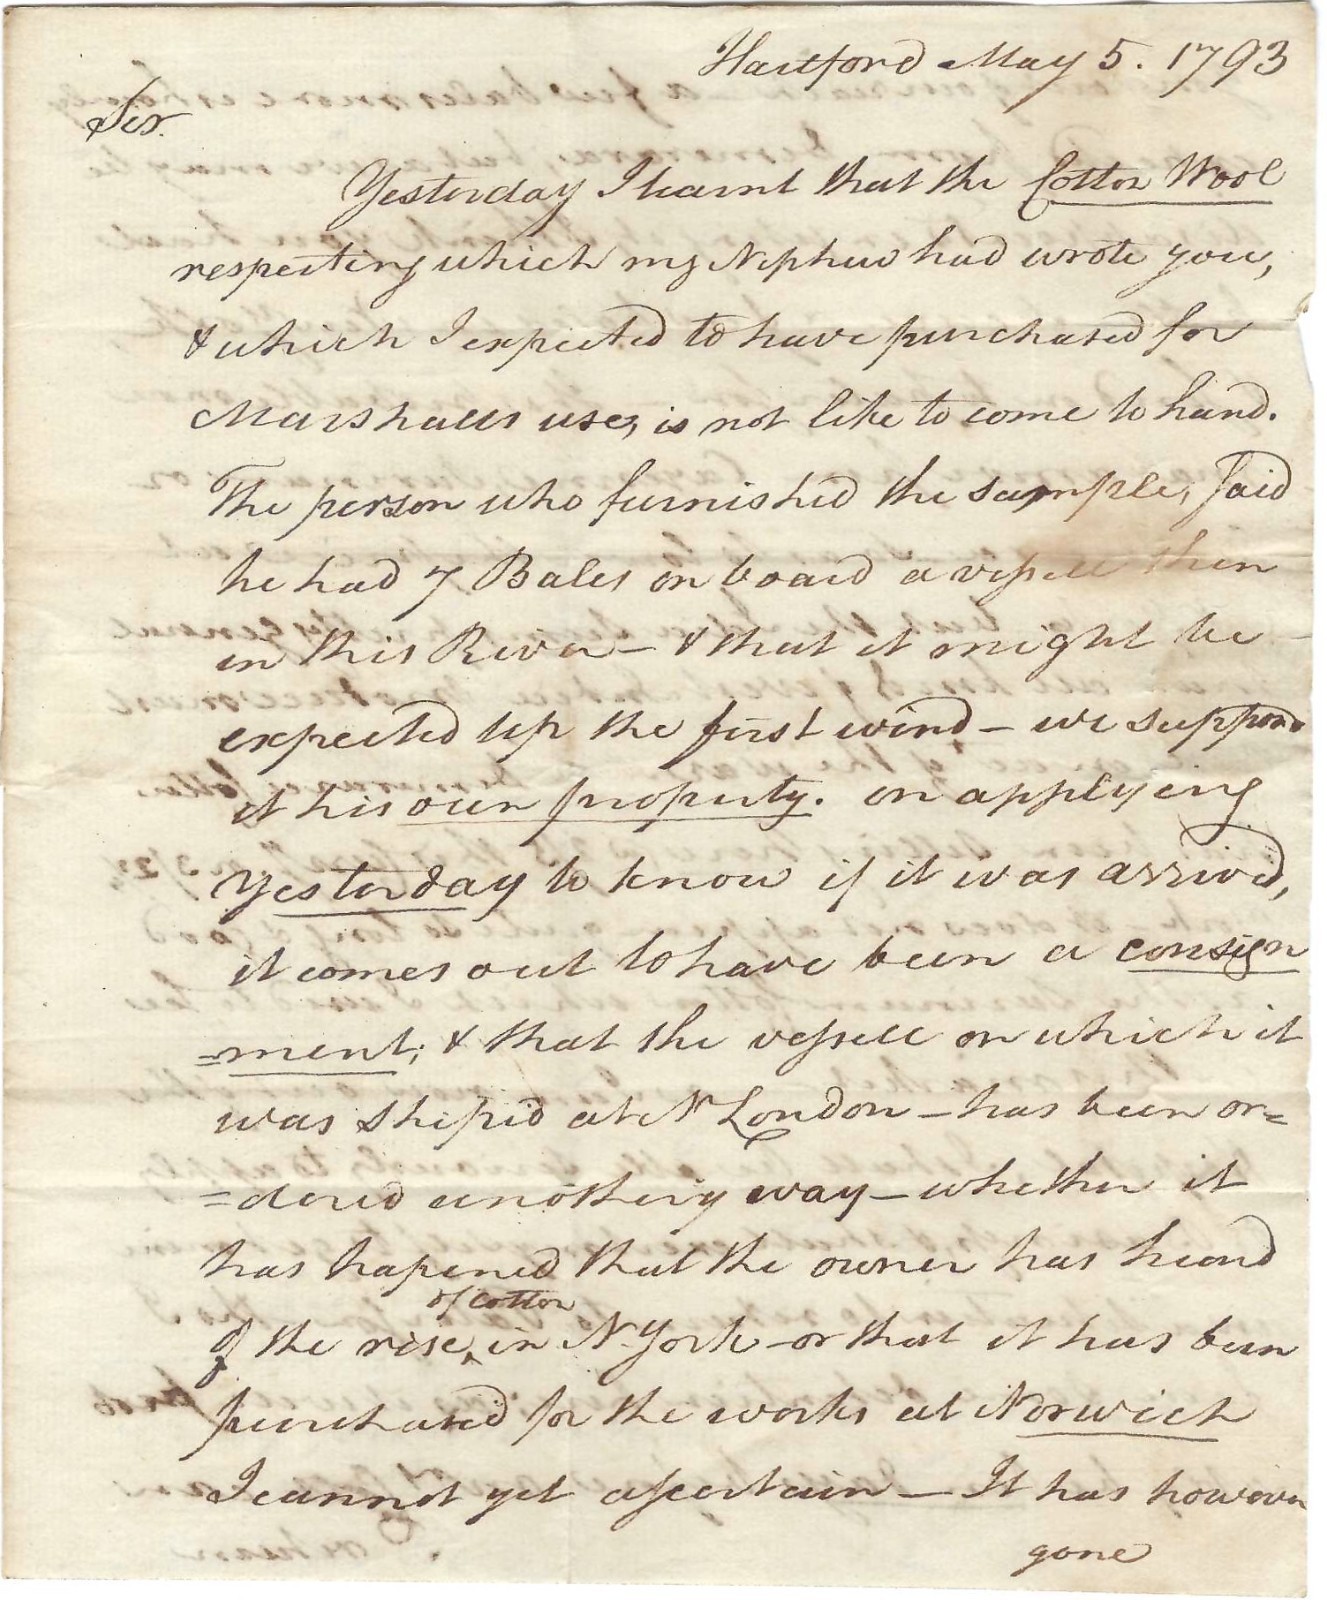 Hartford May 5. 1793
Sir.
Yesterday I learnt that the Cotton Wool
respecting which my Nephew had wrote you,
& which I expected to have purchased for
Marshalls use, is not like to come to hand.
The person who furnished the sample, said
he had 7 Bales on board a vessell then
in this River – & that it might be
expected up the first wind – we suppos'd
it his own property. on applying
Yesterday to know if it was arriv'd,
it comes out to have been a consign
=ment; & that the vessell on which it
was ship'd at N London – has been or=
=dered anothery way – whether it
has hapened that the owner has heard
of the rise of Cotton in N. York – or that it has been
purchased for the works at Norwich
I cannot yet ascertain – It has however
gone